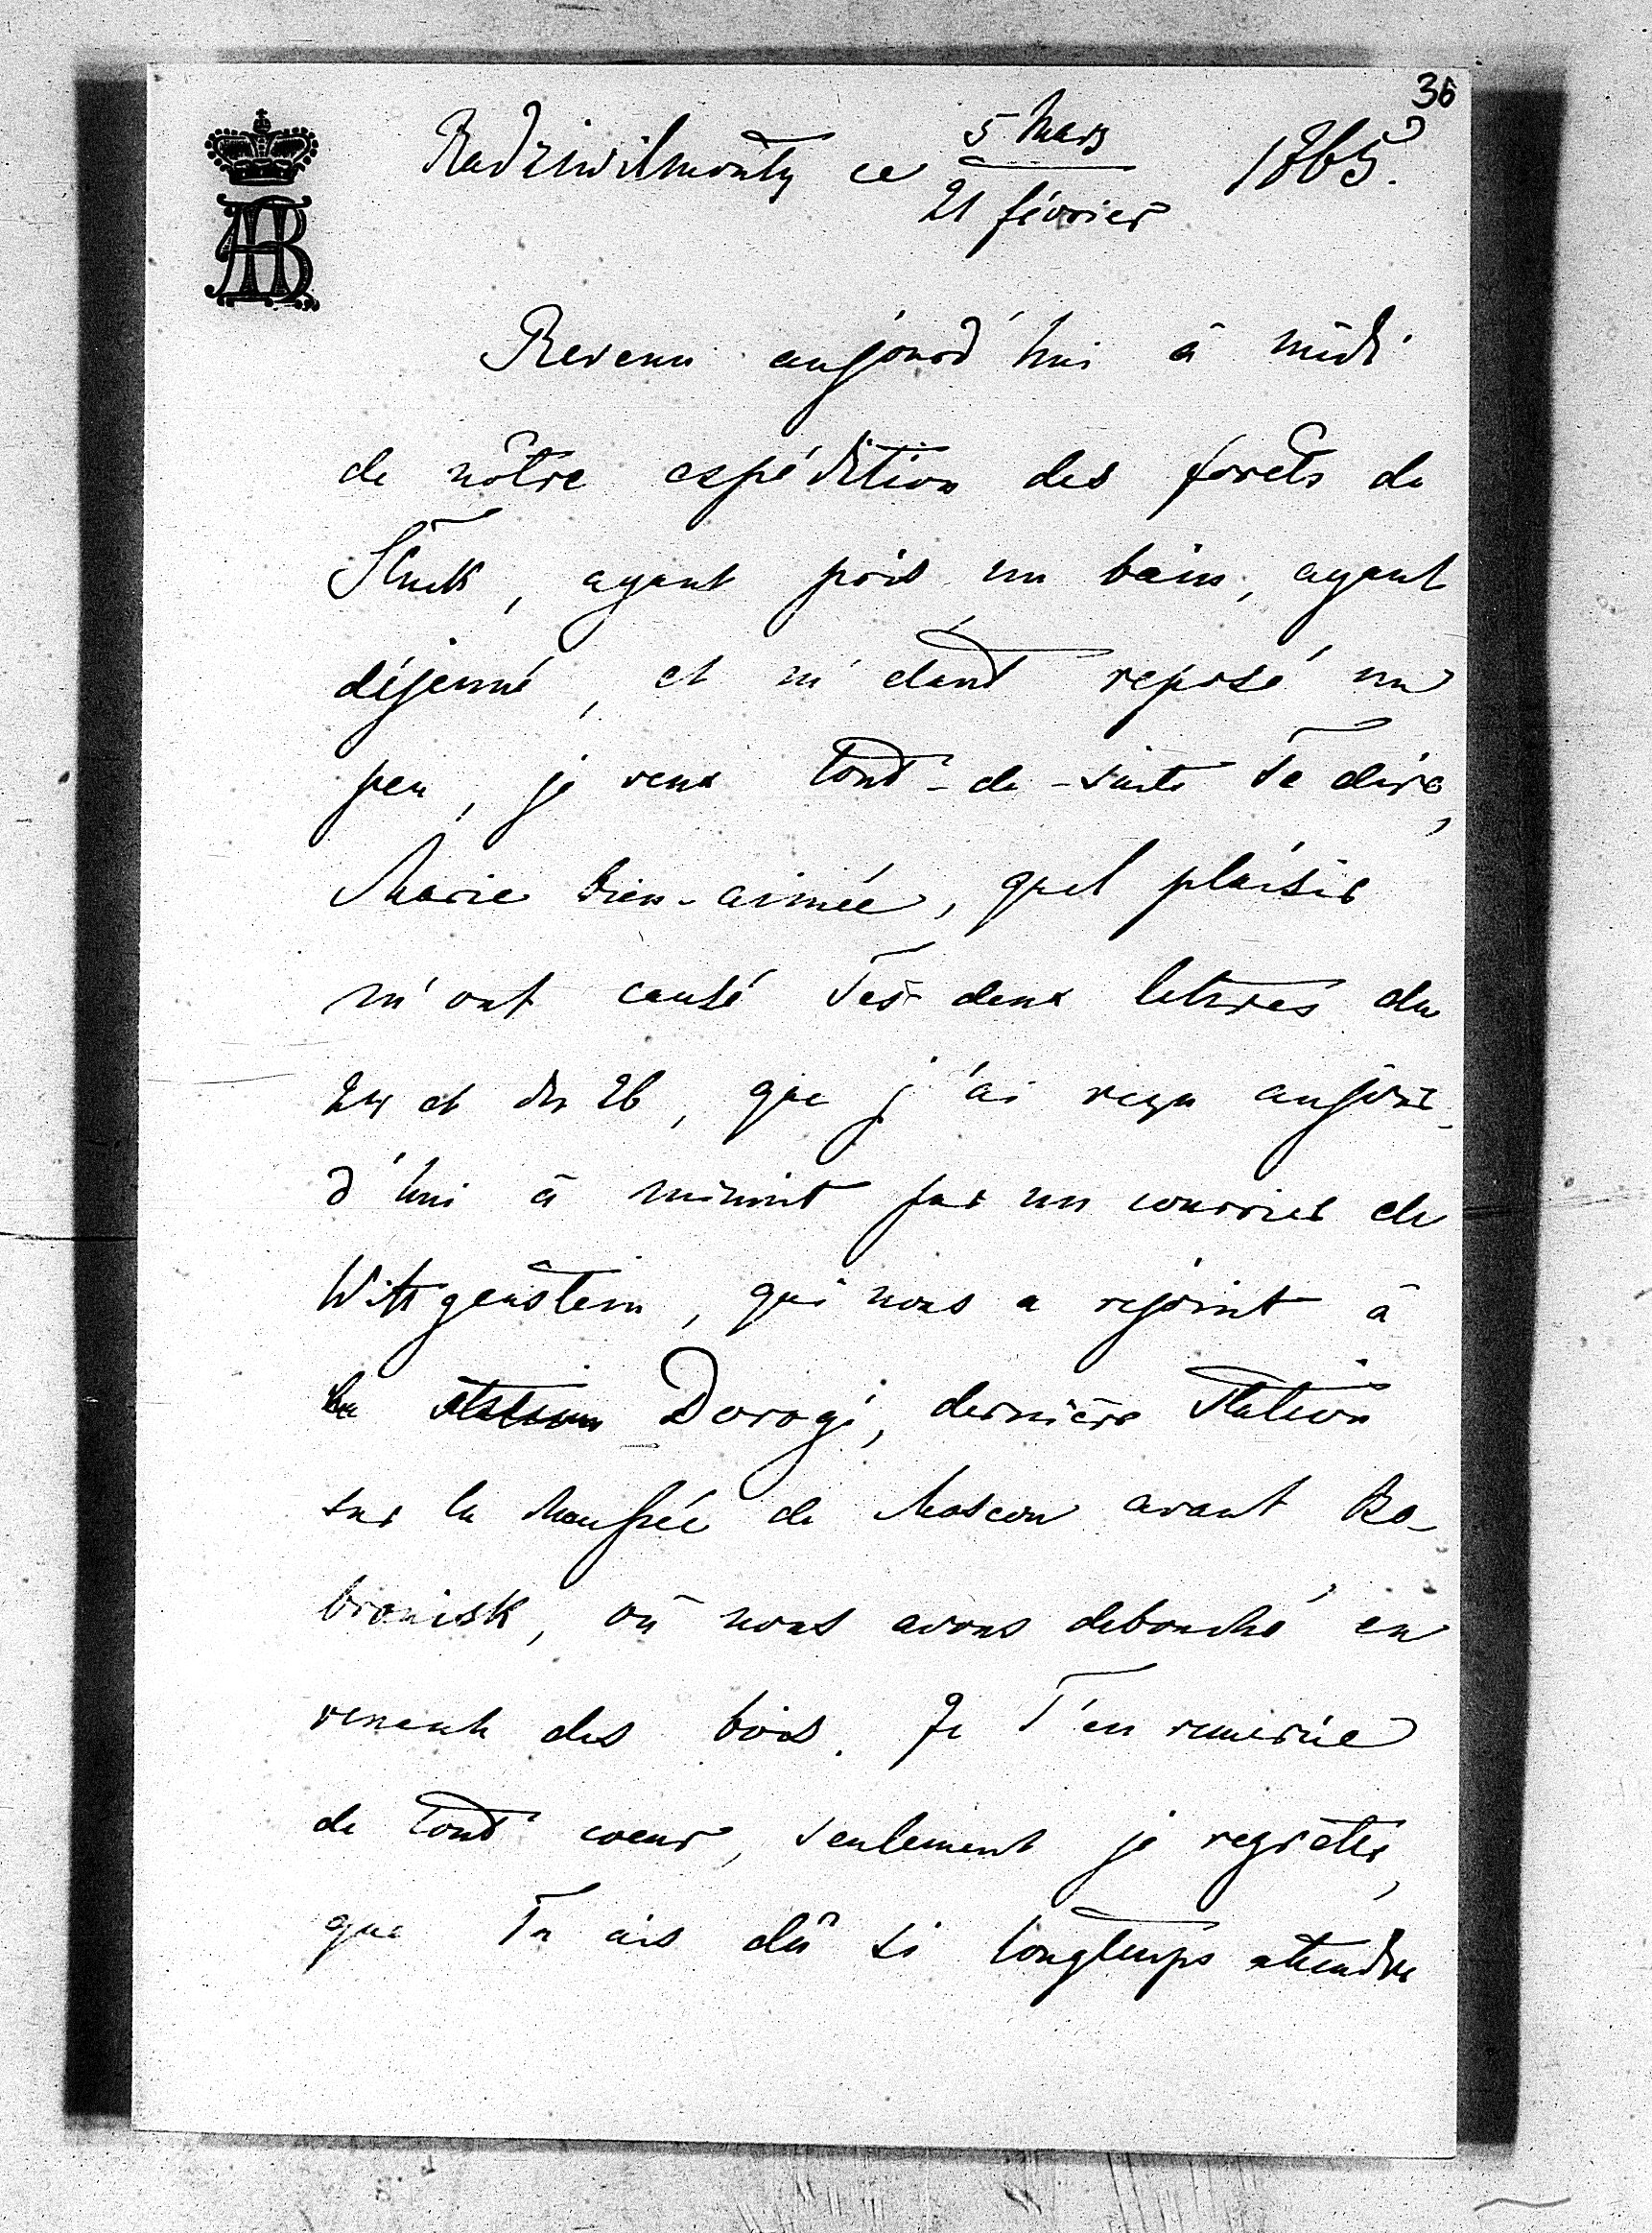 36
Radziwilmonty ce 5 Mars / 21 février 1865.
AB
Revenu aujourd'hui à midi
de nôtre expédition des forêts de
Sluck, ayant pris un bain, ayant
déjeuné, et m'étant reposé un
peu, je veux tout-de-suite Te dire,
Marie bien-aimée, quel plaisir
m'ont causé Tes deux lettres du
24 et du 26, que j'ai reçu aujour-
d'hui à minuit par un courrier de
Wittgenstein, qui nous a rejoint à
la station Dorogi, dernière station
sur la chaussée de Moscou avant Bo-
brouisk, où nous avons debouché en
venant des bois. Je T'en remercie
de tout coeur, seulement je regrette,
que Tu ais dû si longtemps attendre